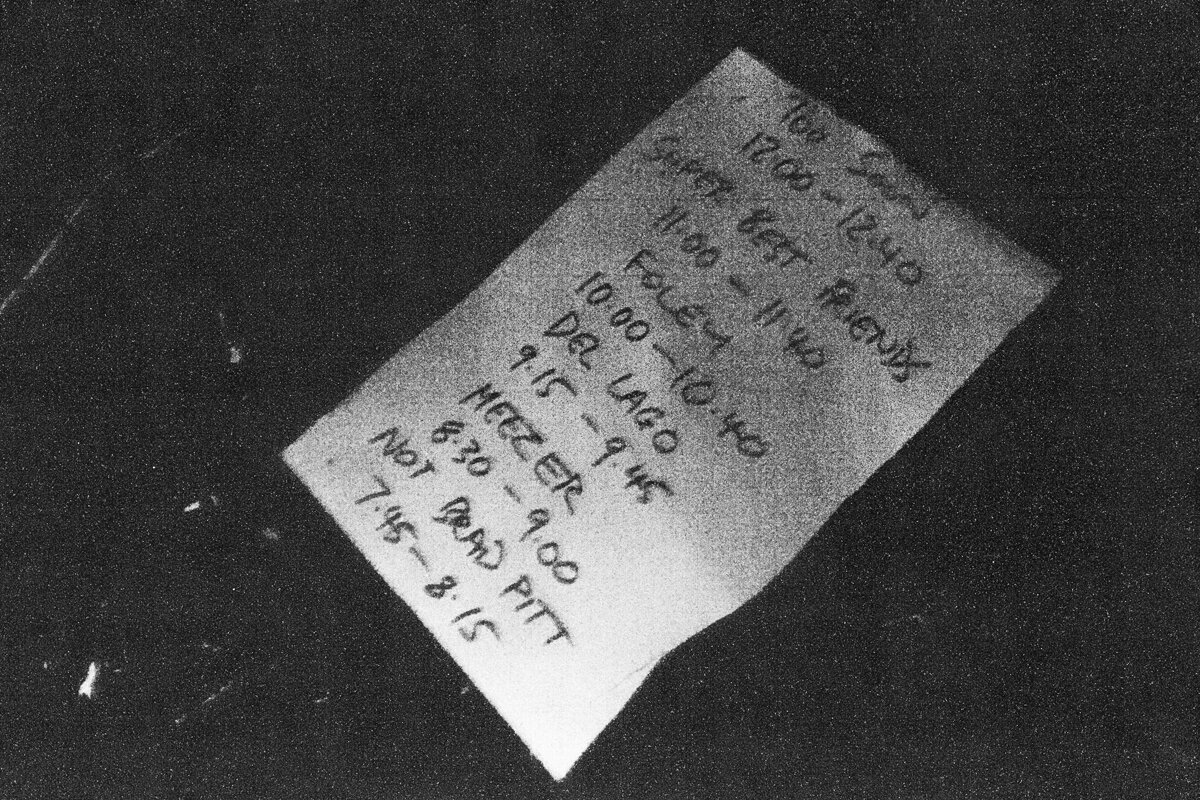 TOO SOON
12.00 - 12.40
SUPER BEST FRIENDS
11.00 - 11.40
FOLEY
10.00 - 10.40
DEL LAGO
9.15 - 9.45
MEEZER
8.30 - 9.00
NOT BRAD PITT
7.45 - 8.15